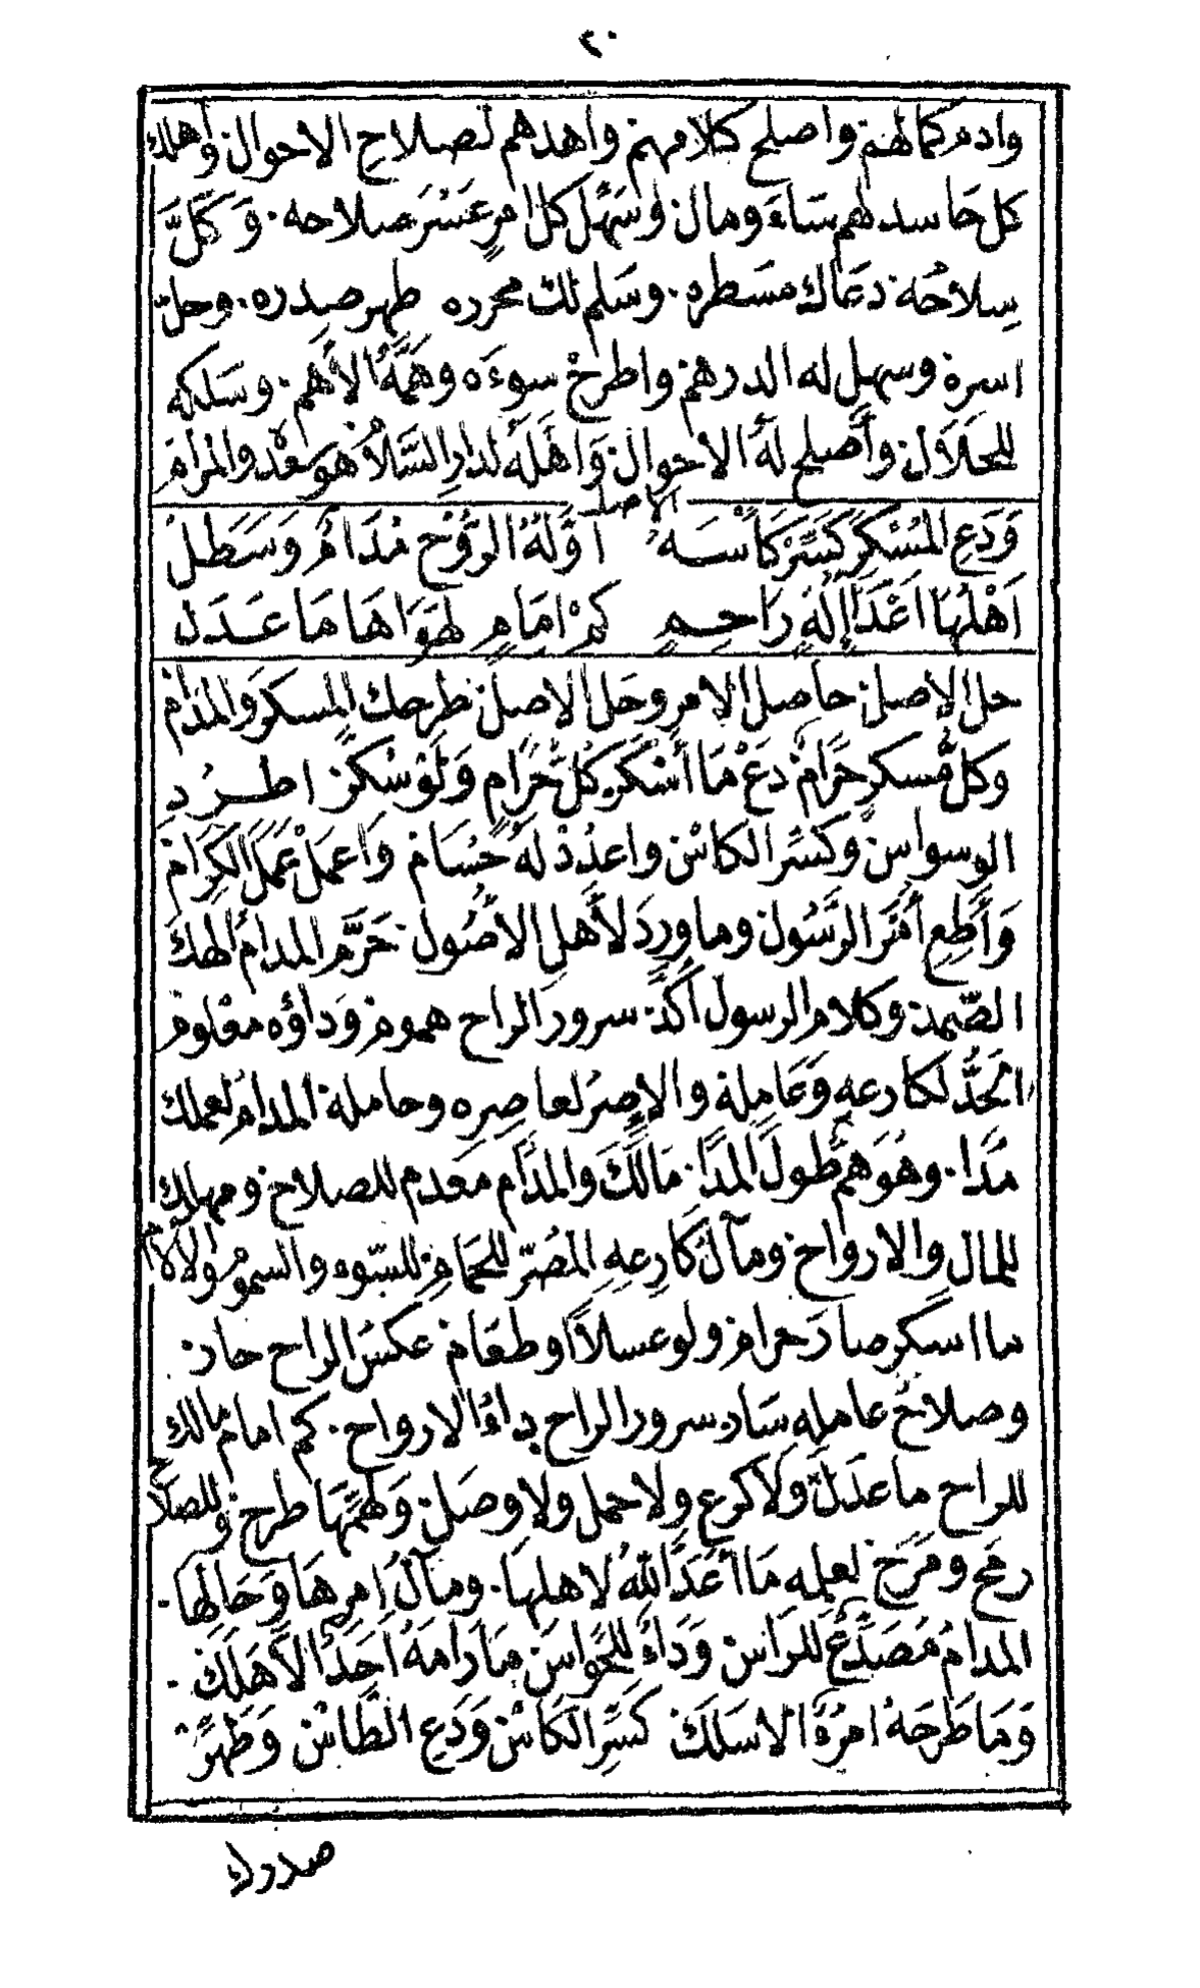 ٢٠
وادم كمالهم واصلح كلامهم واهدهم لصلاح الاحوال واهلك
كل حاسد لهم ساء ومال وسهّل كل امرٍ عَسُرَ صلاحه. وَكَلَّ
سِلاحُه دعاك مسطره. وسلم لك محرره طهر صدره. وحل
اسره وسهل له الدرهم واطرح سوءه وهمّهُ الاهم. وسلكه
للحلال وأصلح لهُ الاحوال وَاهّله لدارِ السَّلامُ هو سعدُه والمرام
الاصل
وَدَعِ المُسْكِرَ كَسِّرْ كَأسَهُ أوَّلهُ الرَّوْحُ مُدَامٌ وَسَطلْ
اَهْلهَا اَعَدَّ اِلهٌ رَاحِمٍ كَمْ اِمَامٍ لِهَوَاهَا مَا عَدَلْ
حل الاصل حاصل الامر وحل الاصل طرحك المسكر والمدام
وكل مُسكرٍ حَرَامٌ دَعْ مَا أَسْكَرَ كُلٌّ حَرَام وَلَوْ سُكّرْ اطردِ
الوسواس وكسّر الكاس واعدُدْ لهُ حُسَامْ وَاعمَلْ عَمَلَ الكِرَامْ
وَأَطِعِ أَمْرَ الرَّسُول وما وردَ لأهلِ الأصُول. حَرَّم المدامُ الهكَ
الصّمد وكلام الرسول أكّد سرور الراح هموم وَداؤه معْلوم
الحَدُّ لكارعهِ وَعَامِلهِ والاِصرُ لعاصِرِه وحامله المدامُ لعملك
مَدَا. وهُوَ همٌّ طولَ المدَا. مَالَكَ والمدَام معْدم للصلاح ومهلك
للمال والارواح ومآلُ كارعِهِ المُصِرّ للحمام للسّوء والسموم والالآم
ما اسكر صار حرام ولو عسلاً او طعَام عكسُ الراح حار.
وصلاحُ عاملهِ سَاد. سرور الراح داءُ الارواح. كم امام مالك
للراح ما عدَلَ ولا كرع ولا حمل ولا وصل وَلهمّهَا طرح وللصلاح
رمح ومَرَح لعلمه مَا أعَدَّ اللهُ لاهلهَا. ومآلُ اِمرِهَا وَحَالهَا.
المدامُ مُصَدِّعٌ للرَاس وَدَاءٌ للحَواس مَا رَامَهُ أحَدٌ الا هَلَكَ.
وَمَا طَرَحَهُ امْرُءٌ الا سَلَكَ كَسِّرِ الكَاسْ وَدَعِ الطَّاسْ وَطَهِّرْ
صدرك